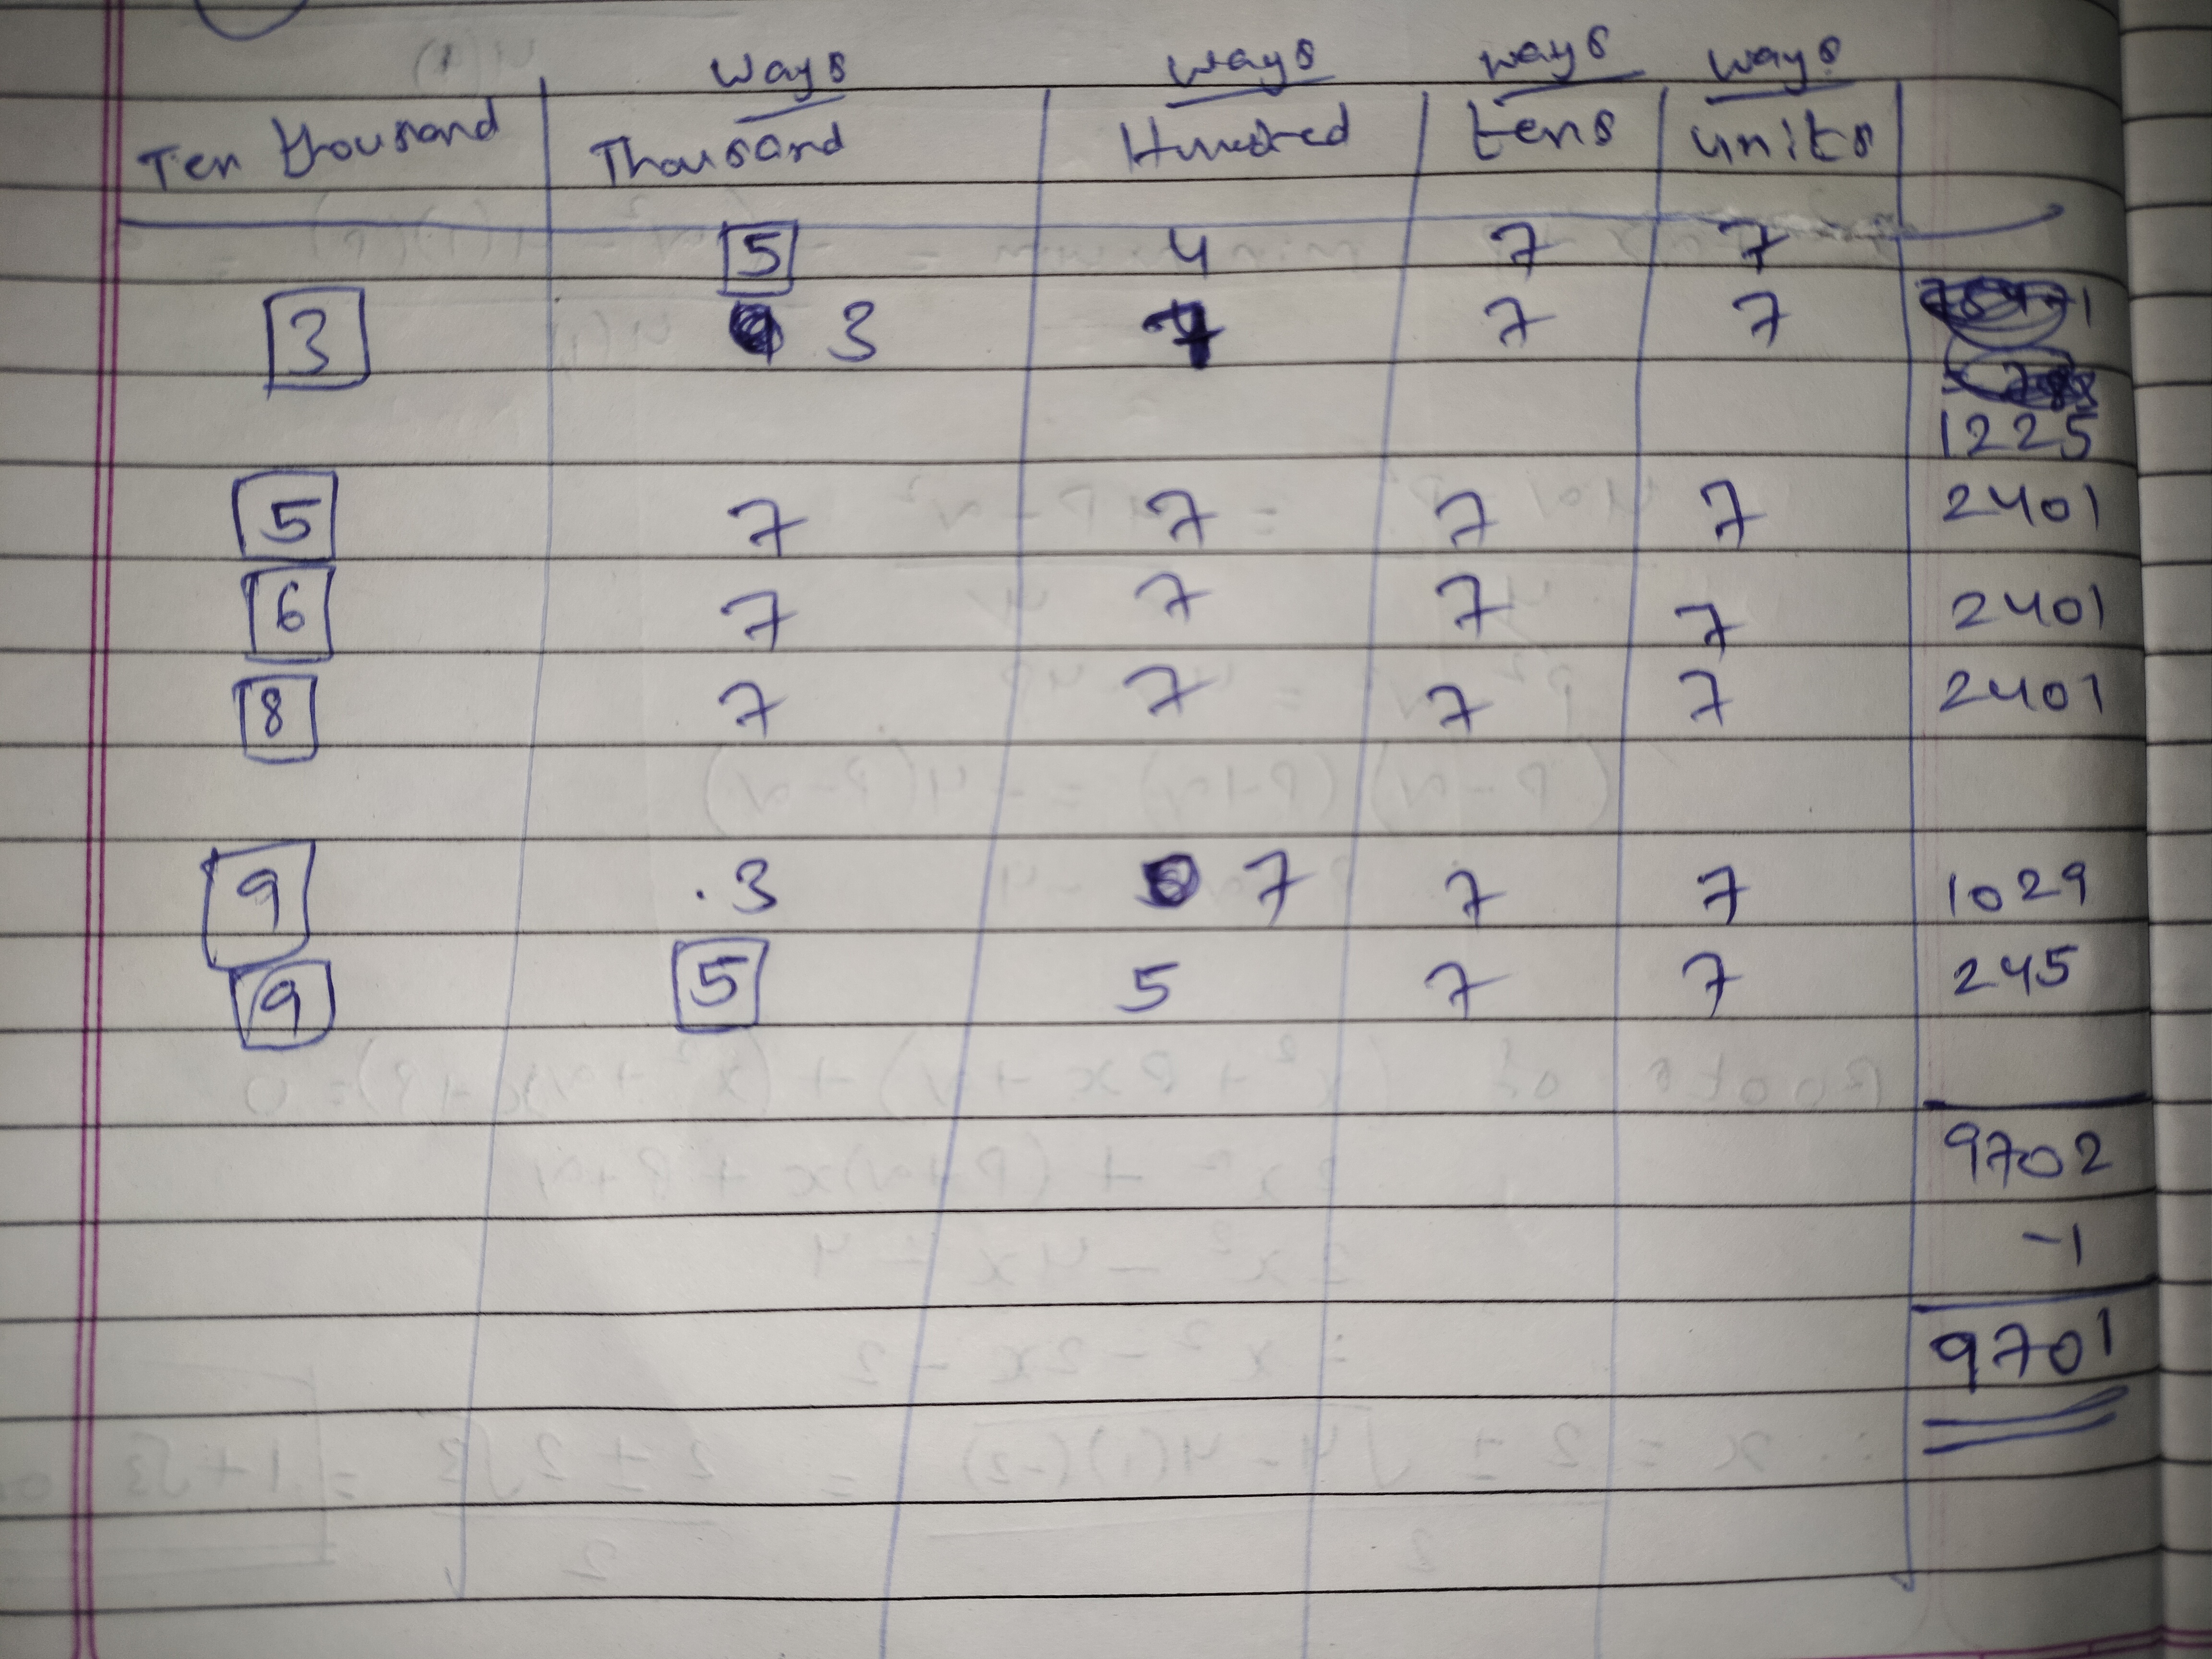 ways ways ways ways
Ten thousand Thousand Hundred tens units
5 4 7 7
3 3 7 7 7
1225
5 7 7 7 7 2401
6 7 7 7 7 2401
8 7 7 7 7 2401
9 .3 7 7 7 1029
9 5 5 7 7 245
9702
-1
9701